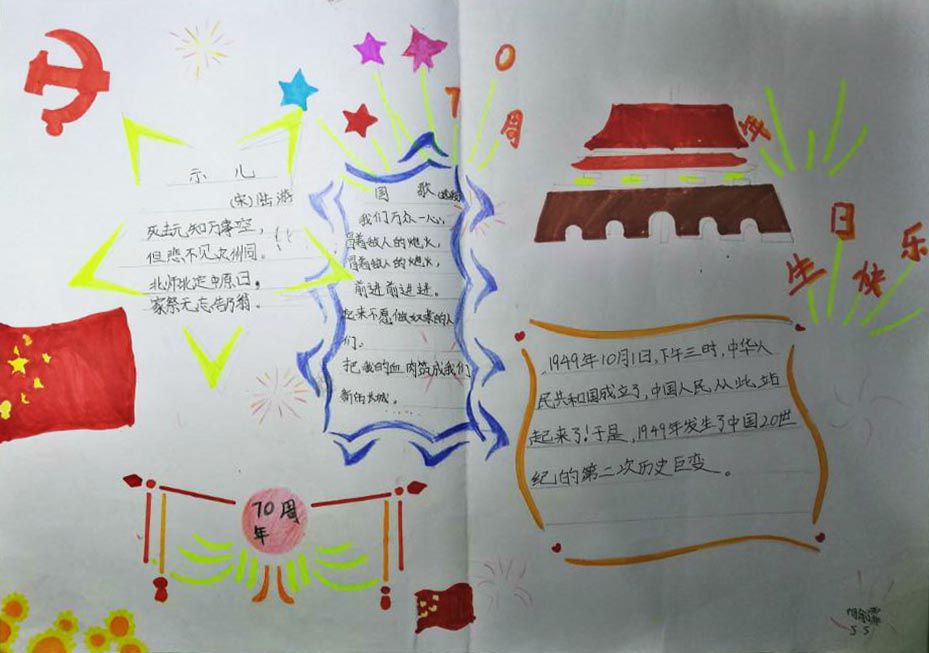 70周年
生日快乐
示儿
(宋)陆游
死去元知万事空,
但悲不见九州同。
北师北定中原日。
家祭无忘告乃翁。
国歌
我们万众一心,
冒着敌人的炮火,
冒着敌人的炮火,
前进前进进。
起来不愿做奴隶的人
们。
把我的血肉筑成我们
新的长城。
1949年10月1日,下午三时,中华人
民共和国成立了,中国人民,从此,站
起来了!于是,1949年发生了中国20世
纪的第二次历史巨变。
70周
年
5.5